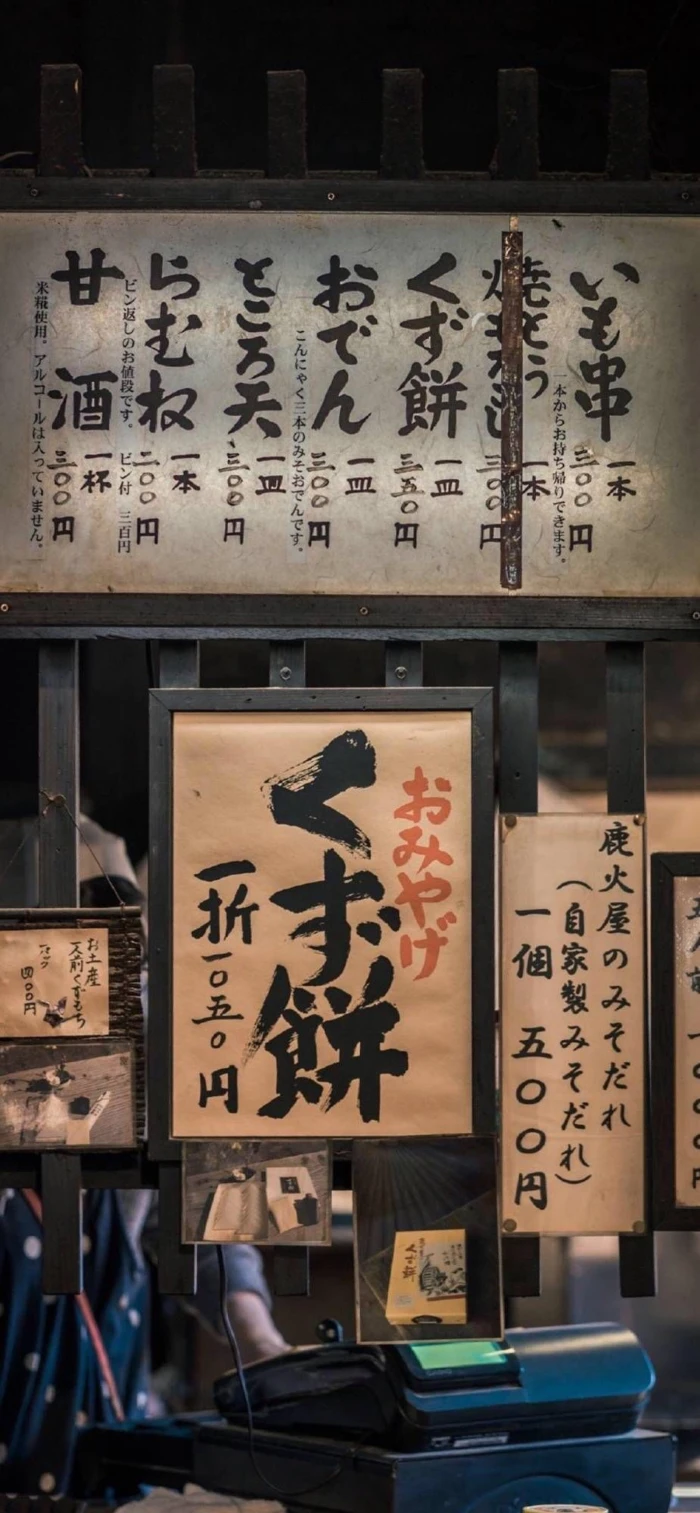 いも串
一本
三〇〇円
一本からお持ち帰りできます。
一本
三〇〇円
くず餅
一皿
三五〇円
おでん
一皿
三〇〇円
こんにゃく三本のみそおでんです。
ところ天
一皿
三〇〇円
らむね
一本
二〇〇円
ビン返しのお値段です。 ビン付 三百円
甘酒
一杯
三〇〇円
米糀使用。アルコールは入っていません。
おみやげ
くず餅
一折一〇五〇円
鹿火屋のみそだれ
（自家製みそだれ）
一個 五〇〇円
お土産
四〇〇円
くず餅